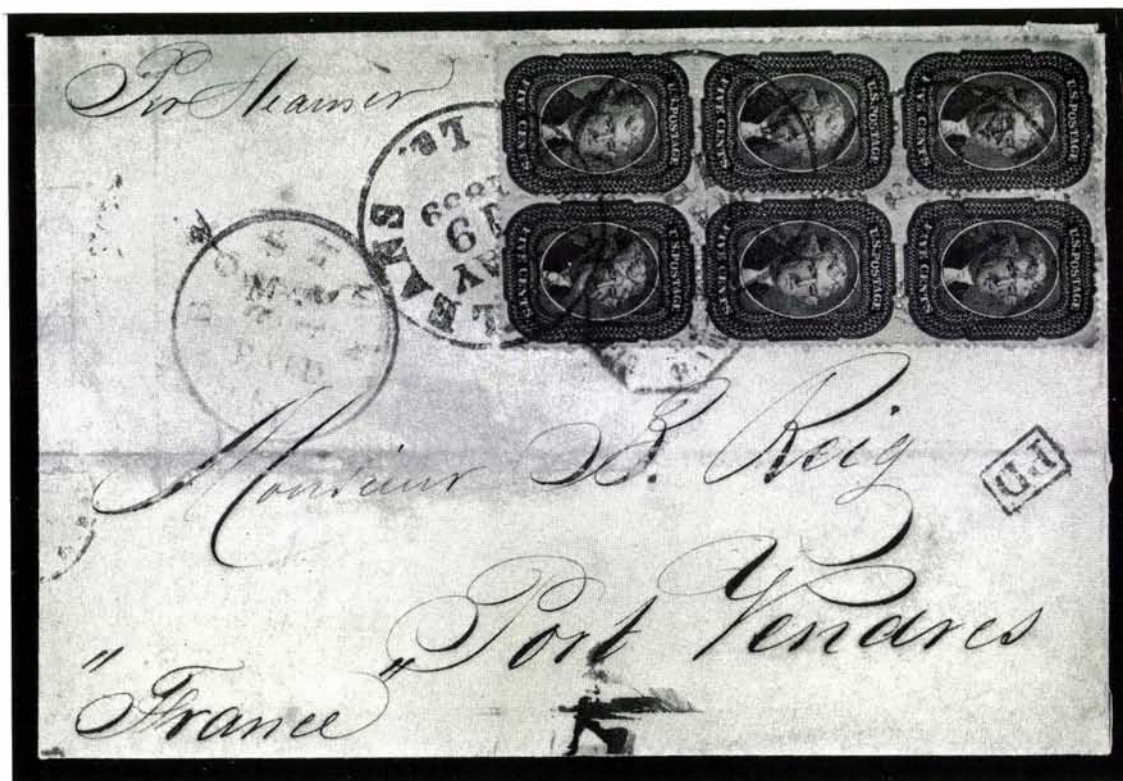 Per Steamer
U.S. POSTAGE
FIVE CENTS
U.S. POSTAGE
FIVE CENTS
U.S. POSTAGE
FIVE CENTS
U.S. POSTAGE
FIVE CENTS
U.S. POSTAGE
FIVE CENTS
U.S. POSTAGE
FIVE CENTS
LEANS La.
BOSTON
PAID
Monsieur B. Reig
PD
Port Vendres
"France"